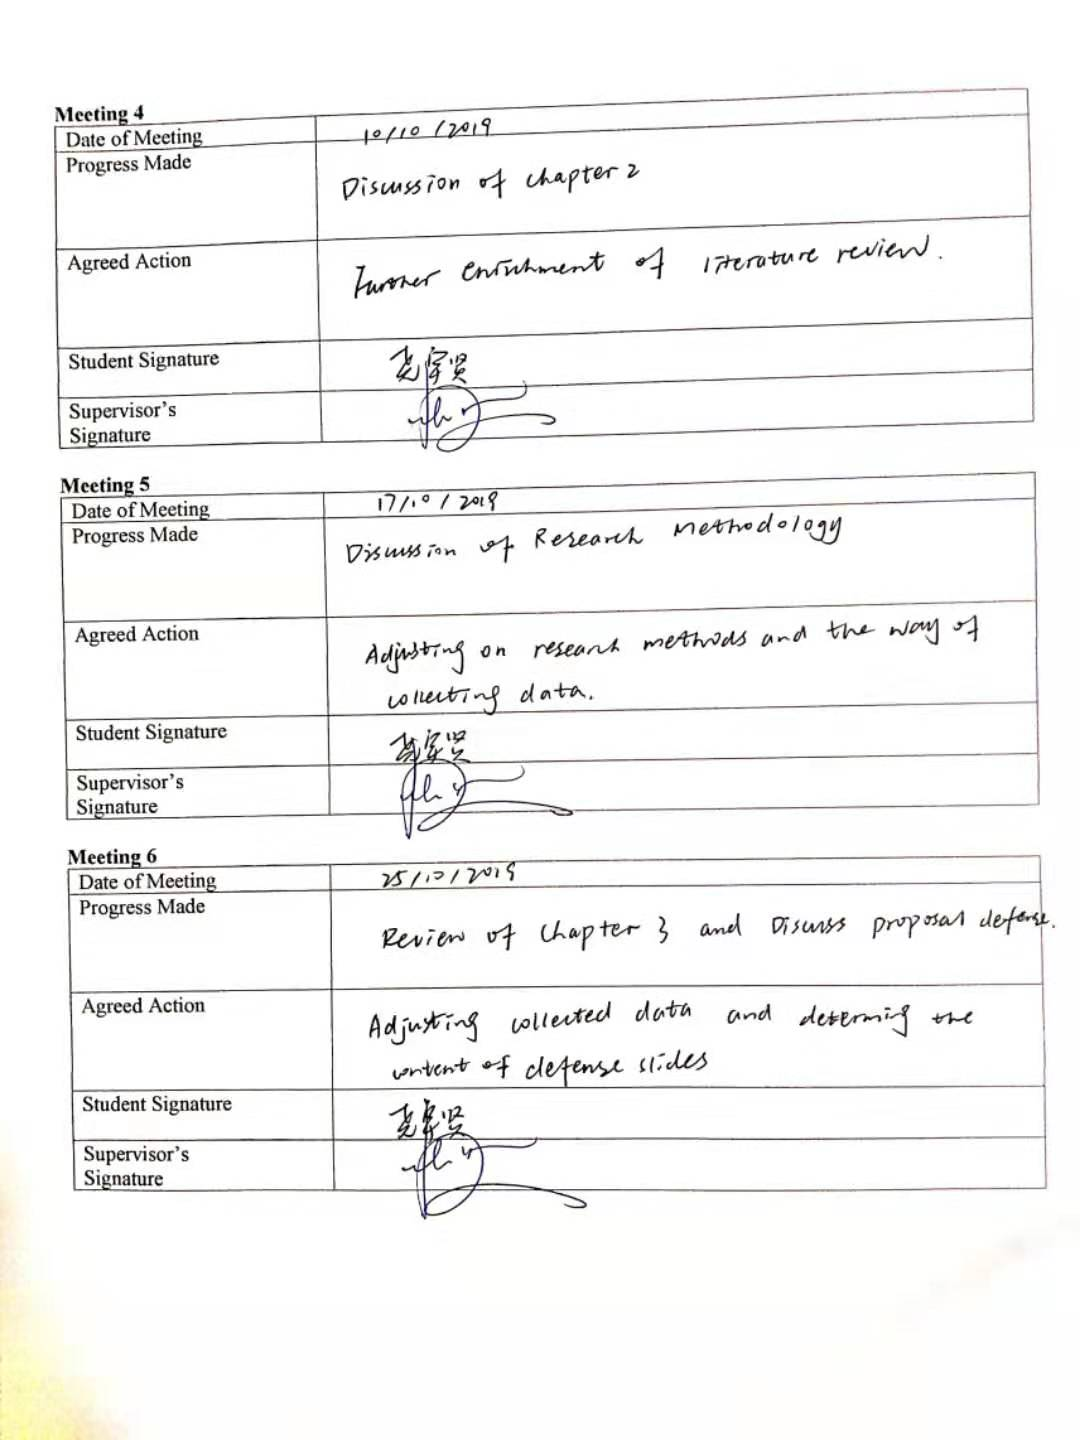 Meeting 4
Date of Meeting 10/10/2019
Progress Made Discussion of chapter 2
Agreed Action Further enrichment of literature review.
Student Signature
Supervisor's
Signature
Meeting 5
Date of Meeting 17/10/2019
Progress Made Discussion of Research Methodology
Agreed Action Adjusting on research methods and the way of
collecting data.
Student Signature
Supervisor's
Signature
Meeting 6
Date of Meeting 25/10/2019
Progress Made Review of Chapter 3 and Discuss proposal defense.
Agreed Action Adjusting collected data and determing the
content of defense slides
Student Signature
Supervisor's
Signature